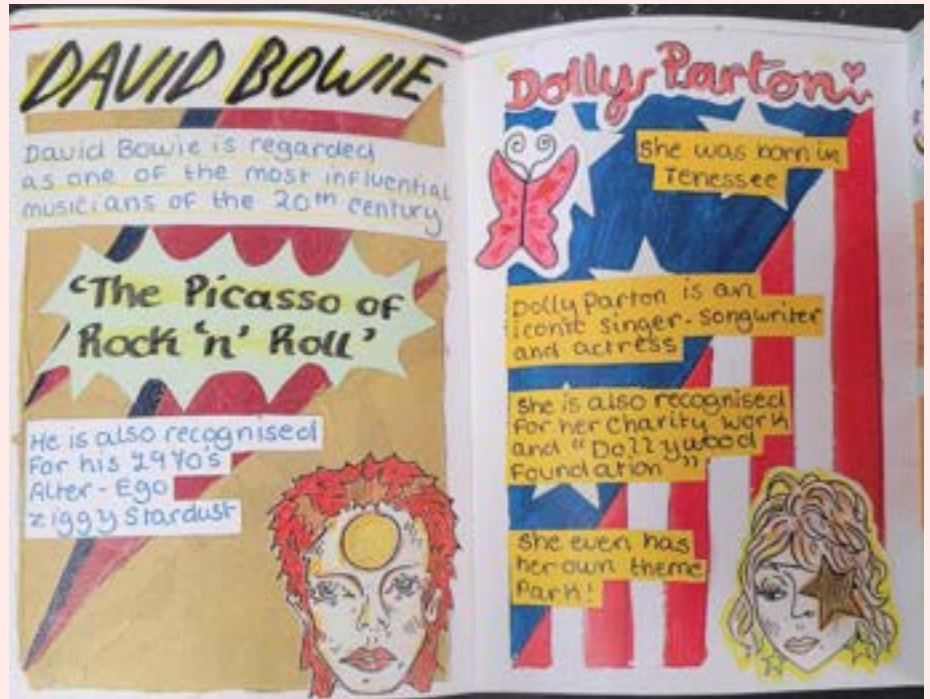 DAVID BOWIE
David Bowie is regarded
as one of the most influential
musicians of the 20th century
‘The Picasso of
Rock ‘n’ Roll’
He is also recognised
For his 1970's
Alter-Ego
Ziggy Stardust
Dolly Parton
She was born in
Tenessee
Dolly Parton is an
iconic singer-songwriter
and actress
She is also recognised
For her Charity work
and "Dollywood
Foundation"
She even has
her own theme
Park!